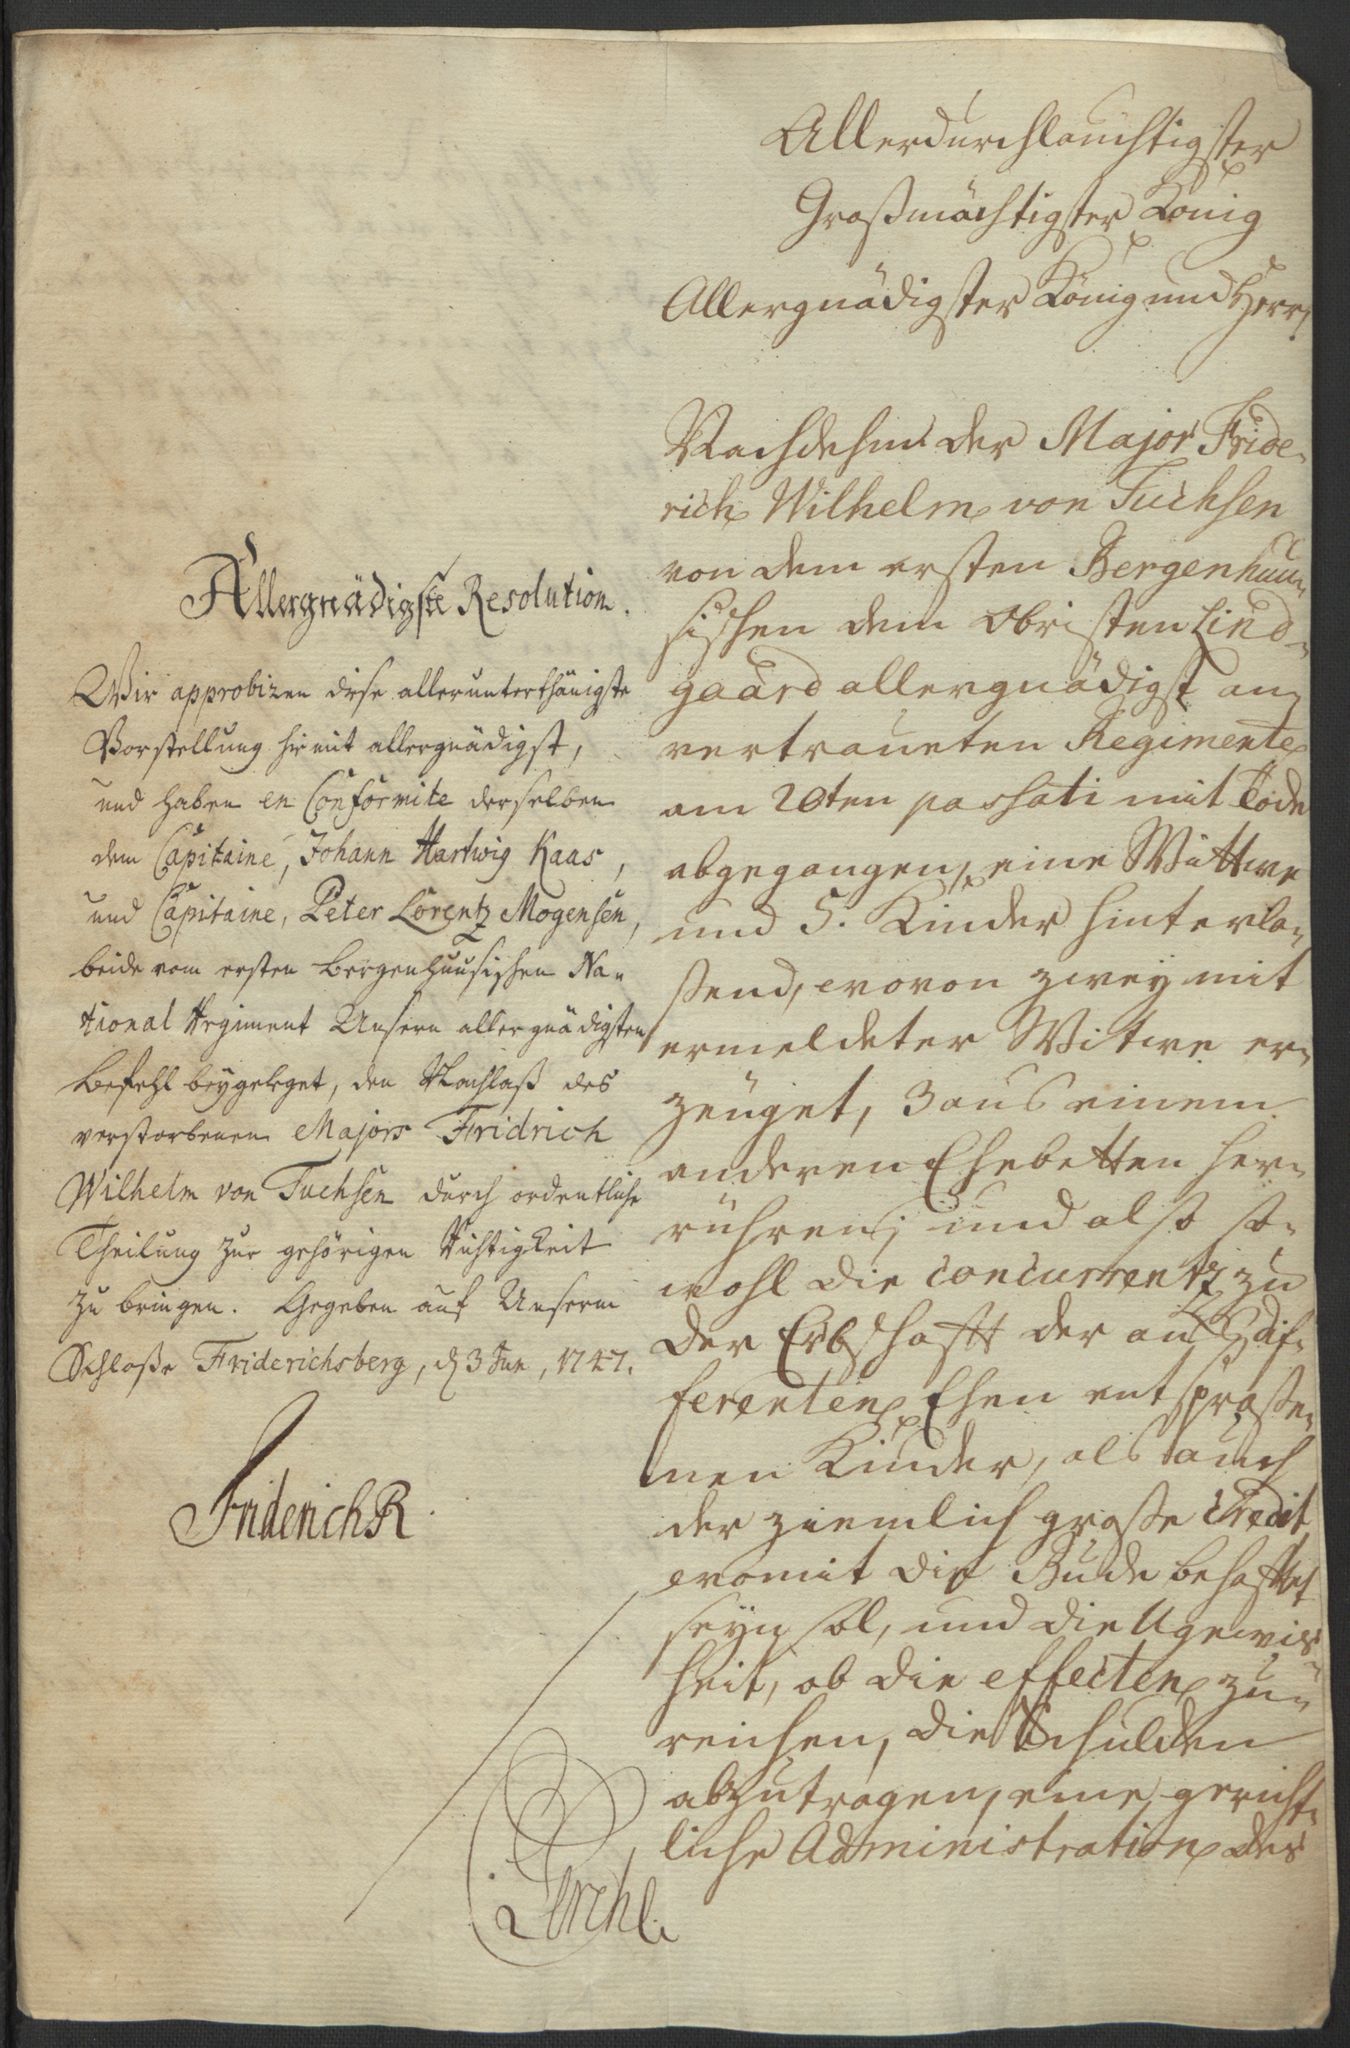 Allerdurchlauchtigster
Großmächtigster König
Allergnädigster König und Herr,
Nachdehm der Major Fride-
rich Wilhelm von Fuchsen
von dem ersten Bergenhuu-
sischen dem Obristen Lind-
gaard allergnädigst an-
vertraueten Regimente
am 20ten passati mit Tode
abgegangen, eine Wittwe
und 5. Kinder hinterla-
ßend, wovon zwey mit
ermeldeter Witwe er-
zeüget, 3 aus einem
anderen Ehebetten her-
rühren; und also so-
wohl die concurrentz zu
der Erbschafft der aus dif-
ferenten Ehen entsproße-
nen Kinder, als auch
der ziemlich große Credit
womit die Bude behafftet
seyn sol, und die Ugewis-
heit, ob die effecten zu-
reichen, die Schulden
abzutragen, eine gericht-
liche Administration des
Allergnädigste Resolution.
Wir approbiren diese allerunterthänigste
Vorstellung hiemit allergnädigst,
und haben en Conformite derselben
dem Capitaine, Johann Hartwig Kaas,
und Capitaine, Peter Lorentz Mogensen,
beide vom ersten Bergenhuusischen Na-
tional Regiment Unsern allergnädigsten
Befehl beygeleget, den Nachlaß des
verstorbenen Majors Fridrich
Wilhelm von Fuchsen durch ordentliche
Theilung zur gehörigen Richtigkeit
zu bringen. Gegeben auf Unserm
Schloße Friderichsberg, d 3 Jun, 1747.
Friderich R